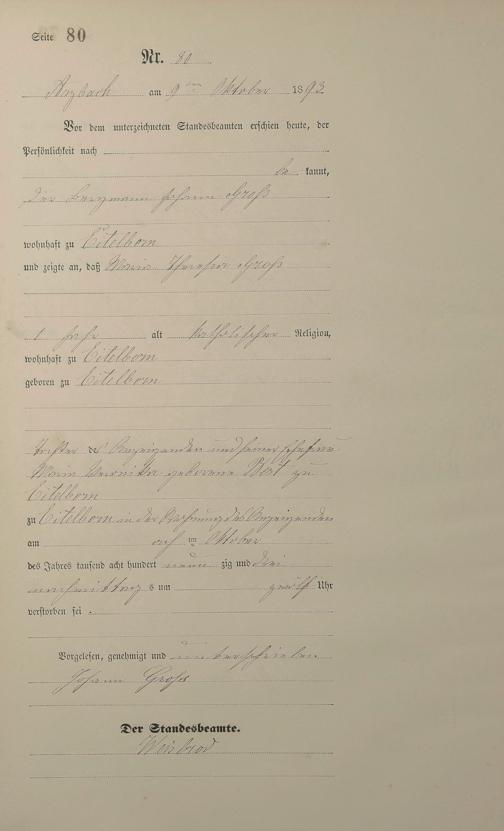 Seite 80
Nr. 80
Arzbach am 9ten Oktober 1893
Vor dem unterzeichneten Standesbeamten erschien heute, der
Persönlichkeit nach
be kannt,
der Bergmann Johann Groß
wohnhaft zu Eitelborn
und zeigte an, daß Maria Theresia Groß
1 Jahr alt katholischer Religion,
wohnhaft zu Eitelborn
geboren zu Eitelborn
Tochter des Anzeigenden und seiner Ehefrau
Maria Veronika geborene Böst zu
Eitelborn
zu Eitelborn in der Wohnung des Anzeigenden
am acht ten Oktober
des Jahres tausend acht hundert neun zig und drei
nachmittag s um zwölf Uhr
verstorben sei .
Vorgelesen, genehmigt und unterschrieben
Johann Groß
Der Standesbeamte.
Weisbrod